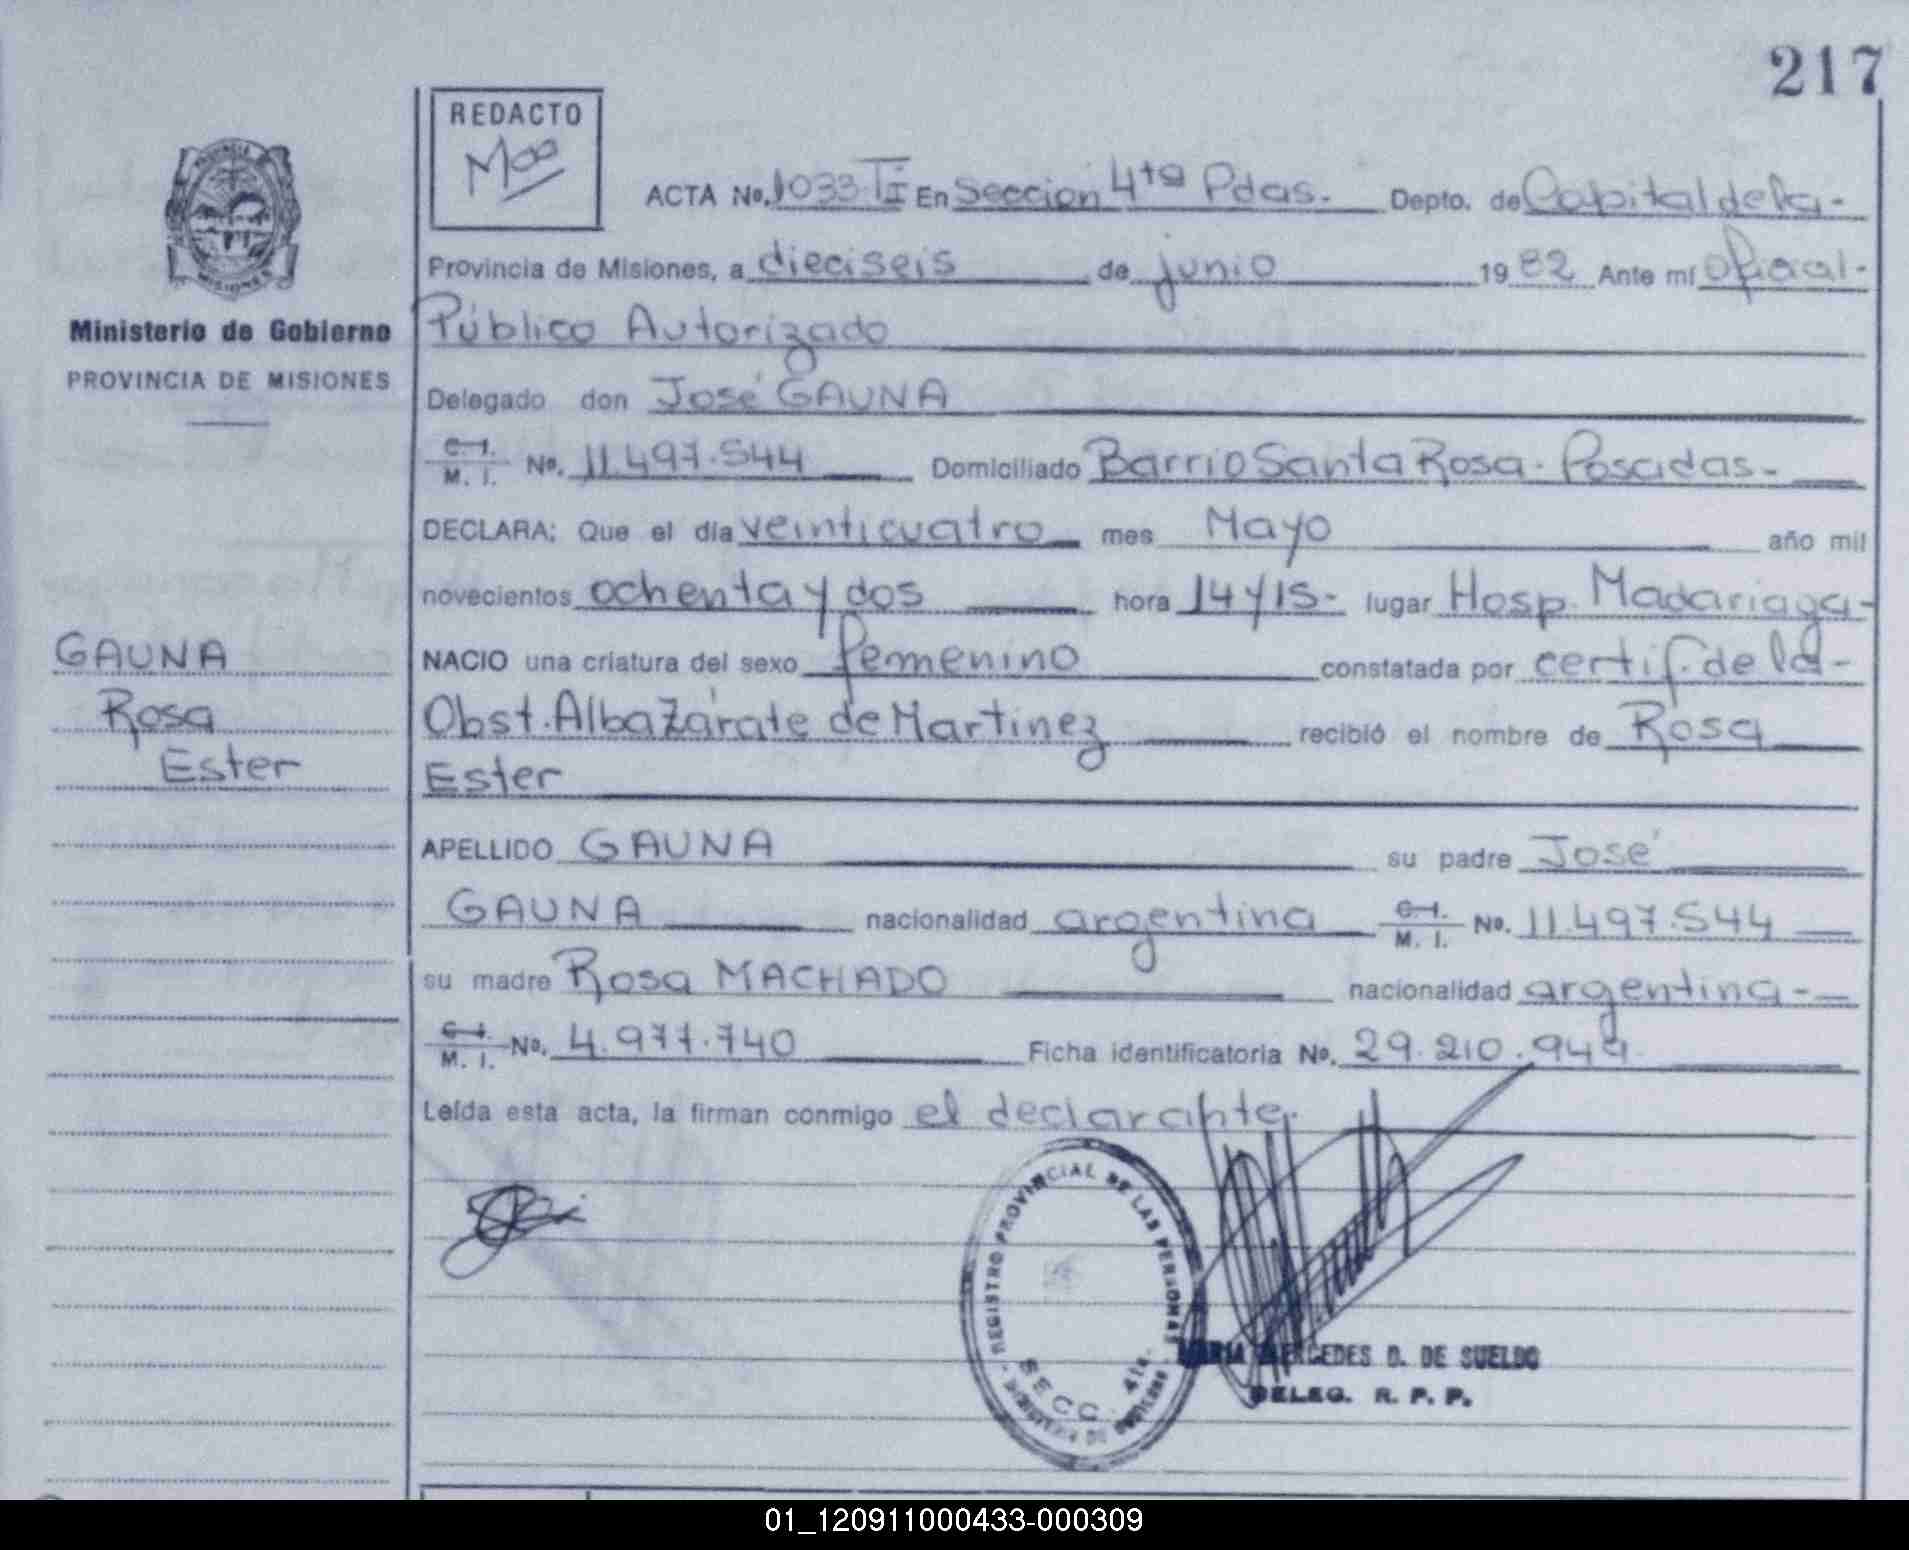 217
REDACTO
Mao
ACTA No. 1033-TI En Seccion 4ta Pdas. Depto. de Capital de la-
Provincia de Misiones, a dieciseis de junio 1982 Ante mí oficial-
Público Autorizado
Delegado don José GAUNA
C. I. M. I. No. 11.497.544 Domiciliado Barrio Santa Rosa. Posadas-
DECLARA: Que el día veinticuatro mes Mayo año mil
novecientos ochenta y dos hora 14 y 15- lugar Hosp. Madariaga-
NACIO una criatura del sexo femenino constatada por certif. de la-
Obst. Alba Zárate de Martinez recibió el nombre de Rosa
Ester
APELLIDO GAUNA su padre José
GAUNA nacionalidad argentina C. I. M. I. No. 11.497.544
su madre Rosa MACHADO nacionalidad argentina-
C. I. M. I. No. 4.977.740 Ficha identificatoria No. 29.210.944
Leída esta acta, la firman conmigo el declarante.
PROVINCIA
MISIONES
Ministerio de Gobierno
PROVINCIA DE MISIONES
GAUNA
Rosa
Ester
REGISTRO PROVINCIAL DE LAS PERSONAS
SECC. 4ta.
MARIA MERCEDES D. DE SUELDO
DELEG. R. P. P.
01_120911000433-000309